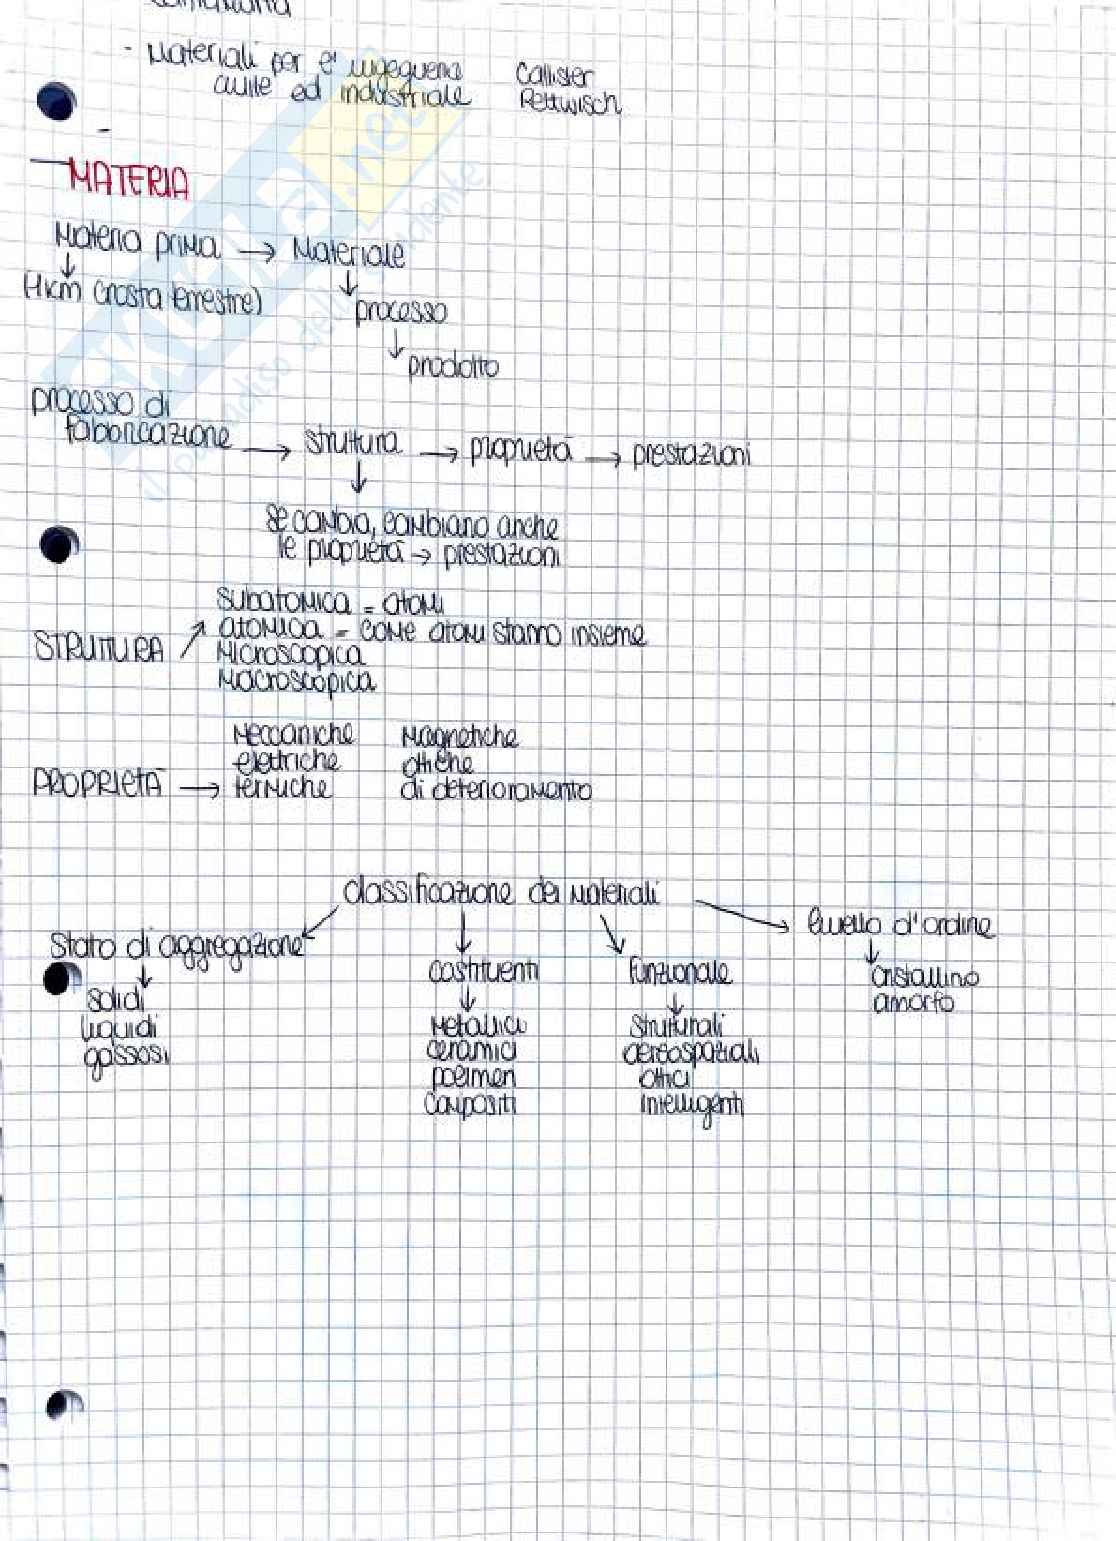 - Materiali per l'ingegneria Callister
civile ed industriale Rethwisch
-
MATERIA
Materia prima → Materiale
↓ ↓
(4km crosta terrestre) processo
↓
prodotto
processo di
fabbricazione → struttura → proprietà → prestazioni
↓
se cambia, cambiano anche
le proprietà → prestazioni
subatomica = atomi
atomica = come atomi stanno insieme
STRUTTURA ↗ Microscopica
Macroscopica
Meccaniche Magnetiche
elettriche ottiche
PROPRIETÀ → termiche di deterioramento
classificazione dei materiali
livello d'ordine
Stato di aggregazione
↓ costituenti funzionale cristallino
solidi ↓ ↓ amorfo
liquidi Metallici Strutturali
gassosi ceramici aereospaziali
polimeri ottici
Compositi intelligenti
SKUOLA.net
il paradiso dello studente